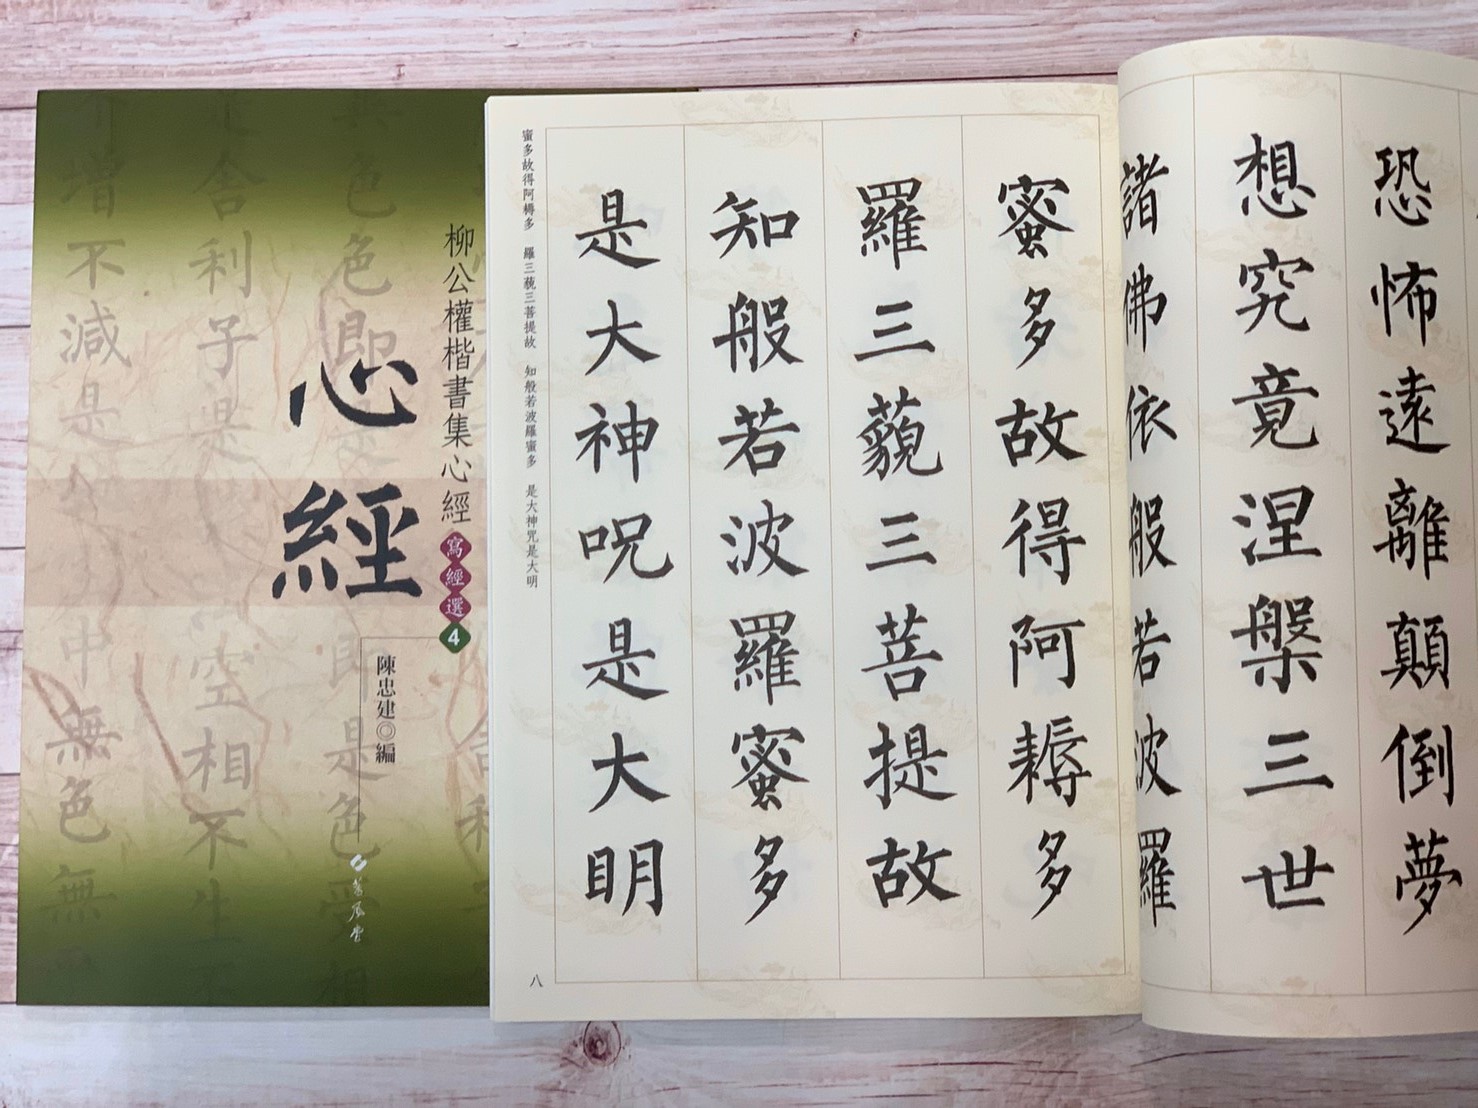 恐怖遠離顛倒夢
想究竟涅槃三世
諸佛依般若波羅
蜜多故得阿耨多
羅三藐三菩提故
知般若波羅蜜多
是大神呪是大明
蜜多故得阿耨多 羅三藐三菩提故 知般若波羅蜜多 是大神咒是大明
八
柳公權楷書集心經
寫經選4
心經
陳忠建◎編
蕙風堂
異色色即 即是色受想
舍利子是 空相不生不
增不減是 中無色無